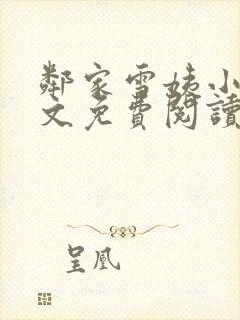 鄰家雪姨小
文免費閱讀
呈凰